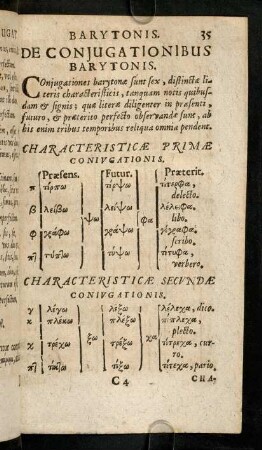 BARYTONIS. 35
DE CONJUGATIONIBUS
BARYTONIS.
Conjugationes barytonæ sunt sex, distinctæ li-
teris characteristicis, tanquam notis quibus-
dam & signis; quæ literæ diligenter in præsenti,
futuro, & præterito perfecto observandæ sunt, ab
his enim tribus temporibus reliqua omnia pendent.
CHARACTERISTICÆ PRIMÆ
CONIVGATIONIS.
Præsens. Futur. Præterit.
π τέρπω τέρψω τέτερφα,
delecto.
β λείβω λείψω λέλειφα,
ψω φα libo.
φ γράφω γράψω γέγραφα,
scribo.
πτ τύπτω τύψω τέτυφα,
verbero.
CHARACTERISTICÆ SECVNDÆ
CONIVGATIONIS.
γ λέγω λέξω λέλεχα, dico.
κ πλέκω πλέξω πέπλεχα,
ξω χα plecto.
χ τρέχω τρέξω τέτρεχα, cur-
ro.
κτ τίκτω τέξω τέτεχα, pario.
C 4 CHA-